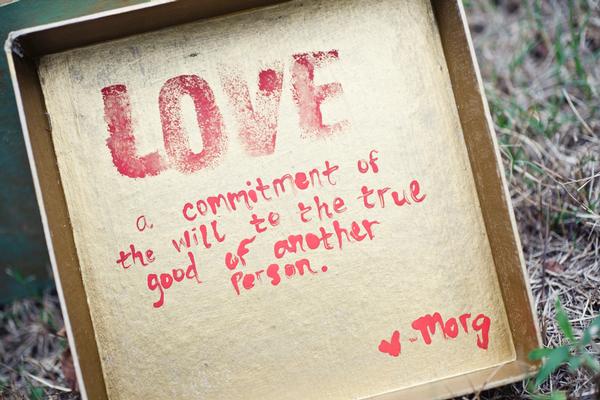 LOVE
a commitment of
the will to the true
good of another
person.
♥-Morg